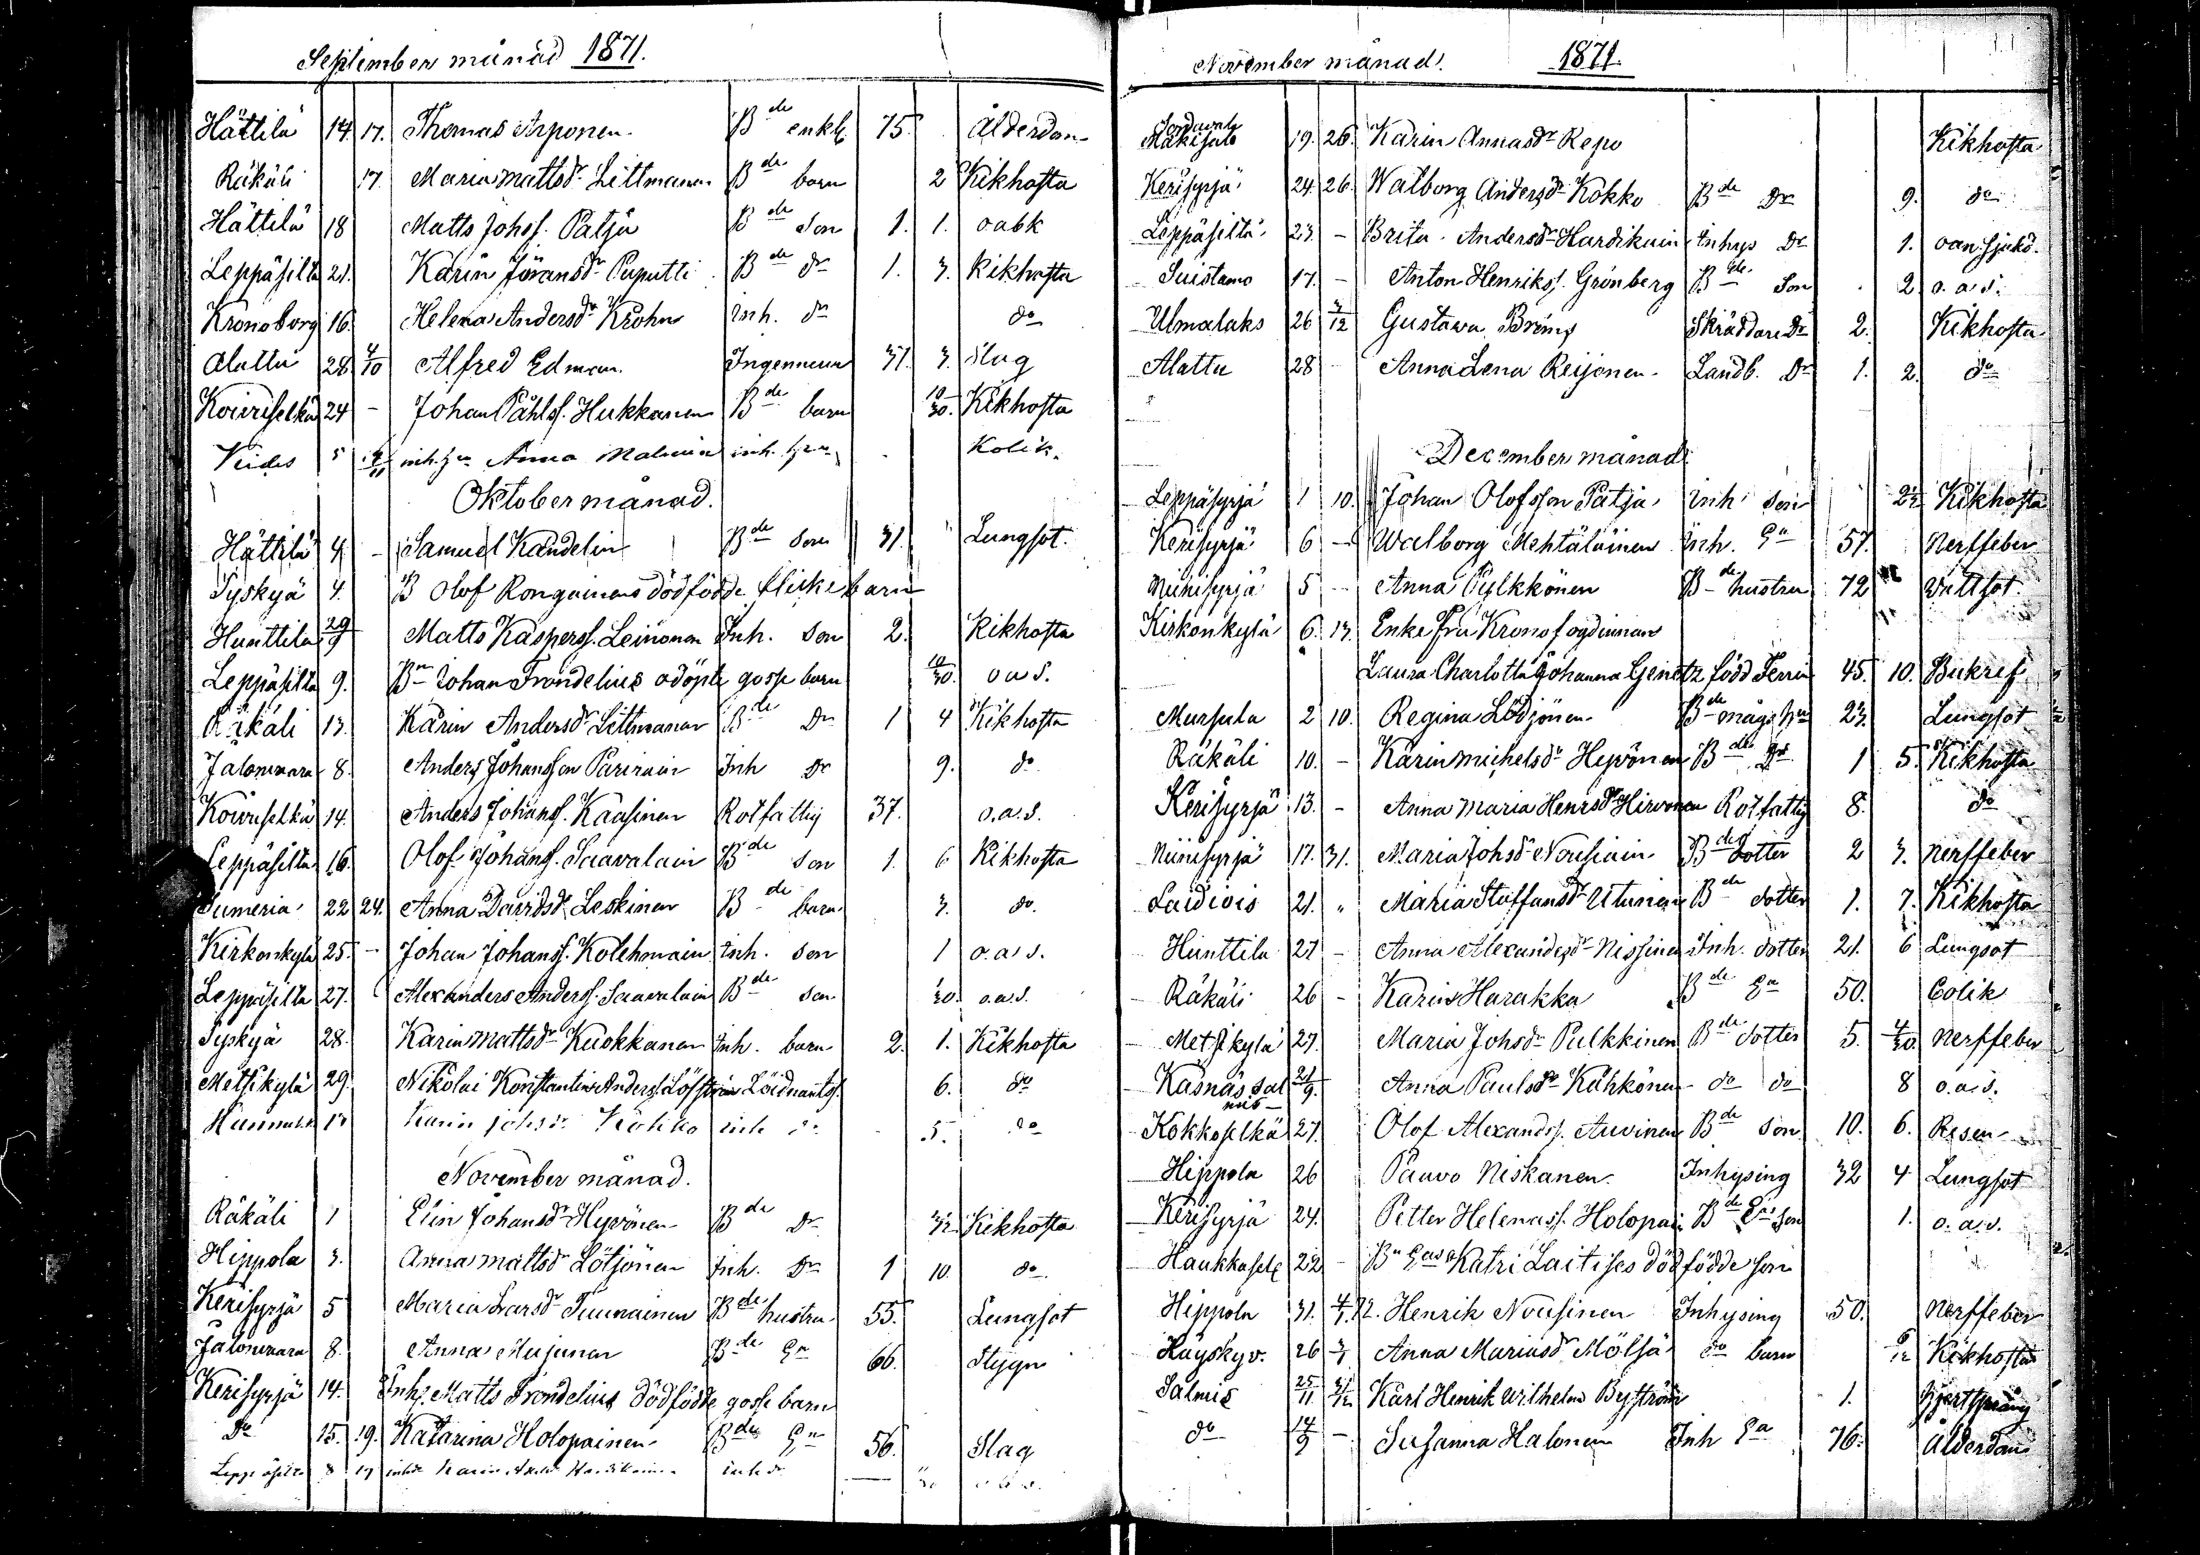 September månad 1871.
Hättilä 14. 17. Thomas Arponen B de enkl. 75. Ålderdom
Räkäli 17. Maria Mattsdr Littmanen B de barn 2 Kikhosta
Hättilä 18 Matts Johss. Patja B de Son 1. 1. oabk
Leppäsilta 21. Karin Jöransdr Puputti B de dr 1. 3. Kikhosta
Kronoborg 16. Helena Andersdr Krohn inh. dr do
Alattu 28. 4/10 Alfred Edman Ingenieur 31. 3. Slag
Koivuselkä 24 - Johan Påhls. Hukkanen B de barn 10/30. Kikhosta
5 inh. Anna Malmin inh. Kolik.
Oktober månad.
Hättilä 4. - Samuel Kandelin B de Son 31. Lungsot.
Syskyä 4. B Olof Rongainens dödfödde flicke barn
Hunttila 29/9 Matts Kaspers. Leinonen Inh. Son 2. Kikhosta
Leppäsilta 9. Bn Johan Frondelius odöpte gosse barn 10/30. o a s.
Räkäli 13. Karin Andersdr Littmanen B de Dr 1 4 Kikhosta
Jalonvaara 8. Anders Johansson Parirain Inh Dr 9. do
Koivuselkä 14. Anders Johans. Kaasinen Rotfattig 37. o.a.s.
Leppäsilta 16. Olof Johans. Saavalain B de Son 1. 6 Kikhosta
Sumeria 22 24. Anna Davidsdr Leskinen B de barn 3. do.
Kirkonkylä 25. - Johan Johans. Kolehmain inh. Son 1 o.a.s.
Leppäsilta 27. Alexanders Anders. Saavalain B de Son /30. o.a.s.
Syskyä 28. Karin Mattsdr Kuokkanen Inh. barn 2. 1. Kikhosta
Metsikylä 29. Nikolai Konstantin Anders. Löfström 6. do
Karin Johsdr Kokko inh dr 5. do
November månad.
Räkäli 1 Elin Johansdr Hyvönen B de Dr 3/12 Kikhosta
Hippola 3. Anna Mattsdr Lötjönen Inh. Dr 1 10. do
Kerisyrjä 5 Maria Larsdr Tuunainen B de hustru 55. Lungsot
Jalonvaara 8. Anna Mujunen B de En 66. Styyn
Kerisyrjä 14. Inh. Matts Frondelius dödfödde gosse barn
Do 15. 19. Katarina Holopainen B des En 56. Slag
Leppäsilta 8 19 Karin inh dr
November månad. 1871.
Sordavala
Mäkisalo 19. 26. Karin Annasdr Repo Kikhosta
Kerisyrjä 24. 26. Walborg Andersdr Kokko B de Dr 9. do
Leppäsilta 23. - Brita Andersdr Hardikain Inhys Dr 1. oan sjukd.
Suistamo 17. - Anton Henriks. Grönberg B de Son 2 o.a.s.
Ulmalaks 26 2/12 Gustava Brims Skräddare Dr 2. Kikhosta
Alattu 28 - Anna Lena Reijonen Landb. Dr 1. 2. do
December månad
Leppäsyrjä 1 10. Johan Olofsson Patja inh Son 2 1/2 Kikhosta
Kerisyrjä 6 - Walborg Mehtäläinen Inh. En 57. Nerffeber
Niinisyrjä 5 - Anna Pylkkönen B de hustru 72 Wattsot
Kirkonkylä 6. 13. Enke fru Kronofogdinnan
Laura Charlotta Johanna Genetz född Ferrin 45. 10. Bukref
Mursula 2 10. Regina Lödjönen B de mågs hu 23. Lungsot
Räkäli 10. - Karin Michelsdr Hyvönen B de Dr 1 5. Kikhosta
Kerisyrjä 13. - Anna Maria Henrsdr Hirvonen Rotfattig 8. do
Niinisyrjä 17. 31. Maria Johsdr Nousiain B de dotter 2 3. Nerffeber
Laidiois 21. " Maria Staffansdr Utunen B de dotter 1. 7. Kikhosta
Hunttila 27 - Anna Alexandersdr Nissinen Inh. dotter 21. 6 Lungsot
Räkäli 26 - Karin Harakka B de En 50. Colik
Metsikylä 27. Maria Johsdr Pulkkinen B de dotter 5. 4/30 Nerffeber
Kasnässal 21/9. Anna Paulsdr Kähkönen do do 8 o.a.s.
Kokkoselkä 27. Olof Alexands. Auvinen B de Son 10. 6. Rosen
Hippola 26 Paavo Niskanen Inhysing 32 4 Lungsot
Kerisyrjä 24. Petter Helenass. Holopai B de Ens Son 1. o.a.s.
Haukkaselk 22 - Bn Enas Katri Laitises dödfödde son
Hippola 31. 4/1.72. Henrik Nousinen Inhysing 50. Nerffeber
Käyskyv. 26 3/1 Anna Mariasdr Mölsä do barn 6/12 Kikhosta
Salmis 25/11 31/12 Karl Henrik Wilhelm Byström 1. Hjertsprång
do 14/9 - Susanna Halonen Inh Ea 76. Ålderdom